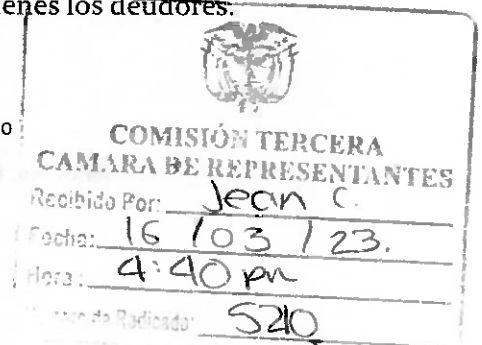 enes los deudores.
o
COMISIÓN TERCERA
CAMARA DE REPRESENTANTES
Recibido Por: Jean C.
Fecha: 16 / 03 / 23.
Hora: 4:40 pm
de Radicado: 5210